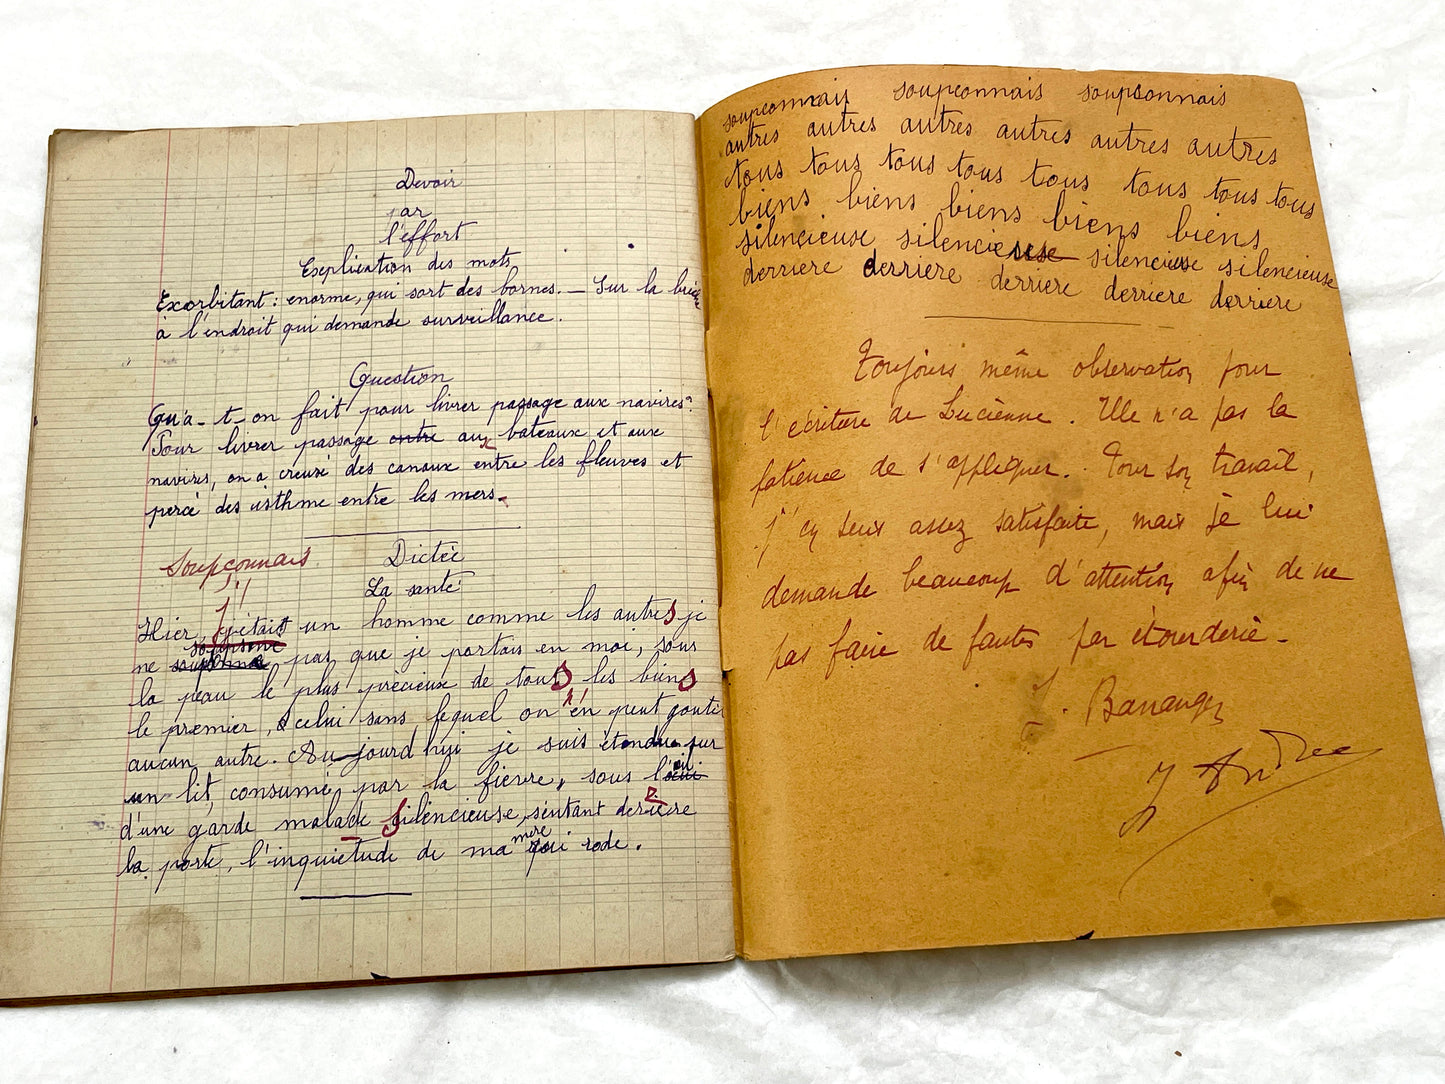 Devoir
par
l'effort
Explication des mots
Exorbitant : enorme, qui sort des bornes. — Sur la
à l'endroit qui demande surveillance.
Question
Qu'a-t-on fait pour livrer passage aux navires?
Pour livrer passage entre aux bateaux et aux
navires, on a creusé des canaux entre les fleuves et
percé des isthme entre les mers.
Soupçonnais
Dictée
La santé
j'
Hier, j'étais un homme comme les autres je
ne pas que je portais en moi, sous
la peau le plus précieux de tous les biens
le premier, celui sans lequel on n'en peut goûter
aucun autre. Au-jourd'hui je suis étendue sur
un lit, consumé par la fièvre, sous l'œil
d'une garde malade silencieuse, sentant derrière
la porte, l'inquiétude de ma mere qui rode.
soupconnais soupconnais soupconnais
autres autres autres autres autres autres
tous tous tous tous tous tous tous tous
biens biens biens biens biens
silencieuse silencieuse silencieuse silencieuse
derriere derriere derriere derriere derriere
Toujours même observation pour
l'écriture de Lucienne. Elle n'a pas la
patience de s'appliquer. Pour son travail,
j'en suis assez satisfaite, mais je lui
demande beaucoup d'attention afin de ne
pas faire de fautes par étourderie.
J. Andree